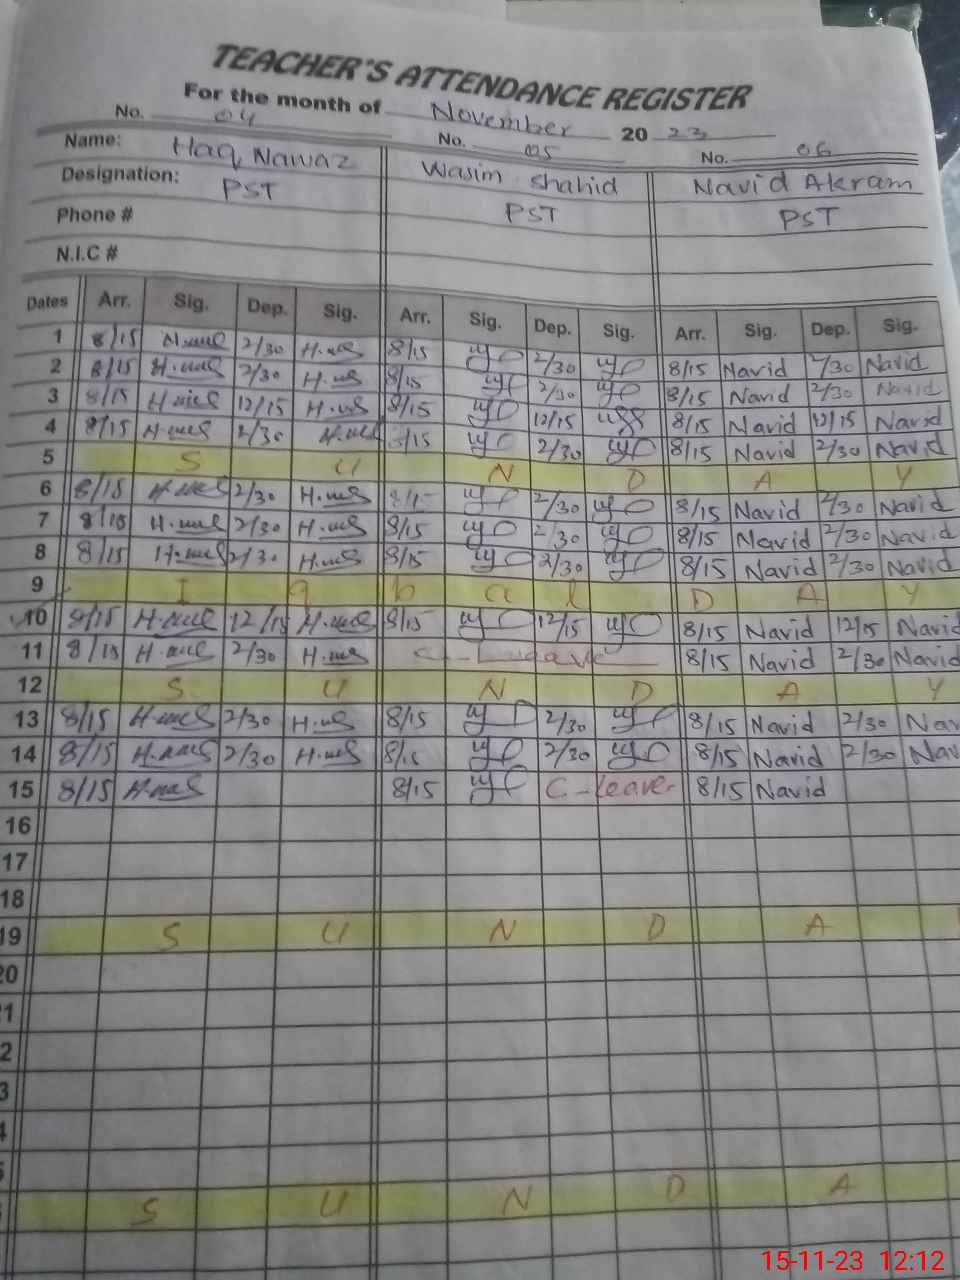 TEACHER'S ATTENDANCE REGISTER
For the month of November 2023
No. 04 No. 05 No. 06
Name: Haq Nawaz Wasim Shahid Navid Akram
Designation: PST PST PST
Phone #
N.I.C #
Dates Arr. Sig. Dep. Sig. Arr. Sig. Dep. Sig. Arr. Sig. Dep. Sig.
1 8/15 2/30 8/15 2/30 8/15 Navid 2/30 Navid
2 8/15 2/30 8/15 2/30 8/15 Navid 2/30 Navid
3 8/15 12/15 8/15 12/15 8/15 Navid 12/15 Navid
4 8/15 2/30 8/15 2/30 8/15 Navid 2/30 Navid
5 S U N D A Y
6 8/15 2/30 8/15 2/30 8/15 Navid 2/30 Navid
7 8/15 2/30 8/15 2/30 8/15 Navid 2/30 Navid
8 8/15 2/30 8/15 2/30 8/15 Navid 2/30 Navid
9 I q b a l D A Y
10 8/15 12/15 8/15 12/15 8/15 Navid 12/15 Navid
11 8/15 2/30 C-Leave 8/15 Navid 2/30 Navid
12 S U N D A Y
13 8/15 2/30 8/15 2/30 8/15 Navid 2/30 Nav
14 8/15 2/30 8/15 2/30 8/15 Navid 2/30 Nav
15 8/15 8/15 C-Leave 8/15 Navid
16
17
18
19 S U N D A
20
1
2
3
4
5
S U N D A
15-11-23 12:12